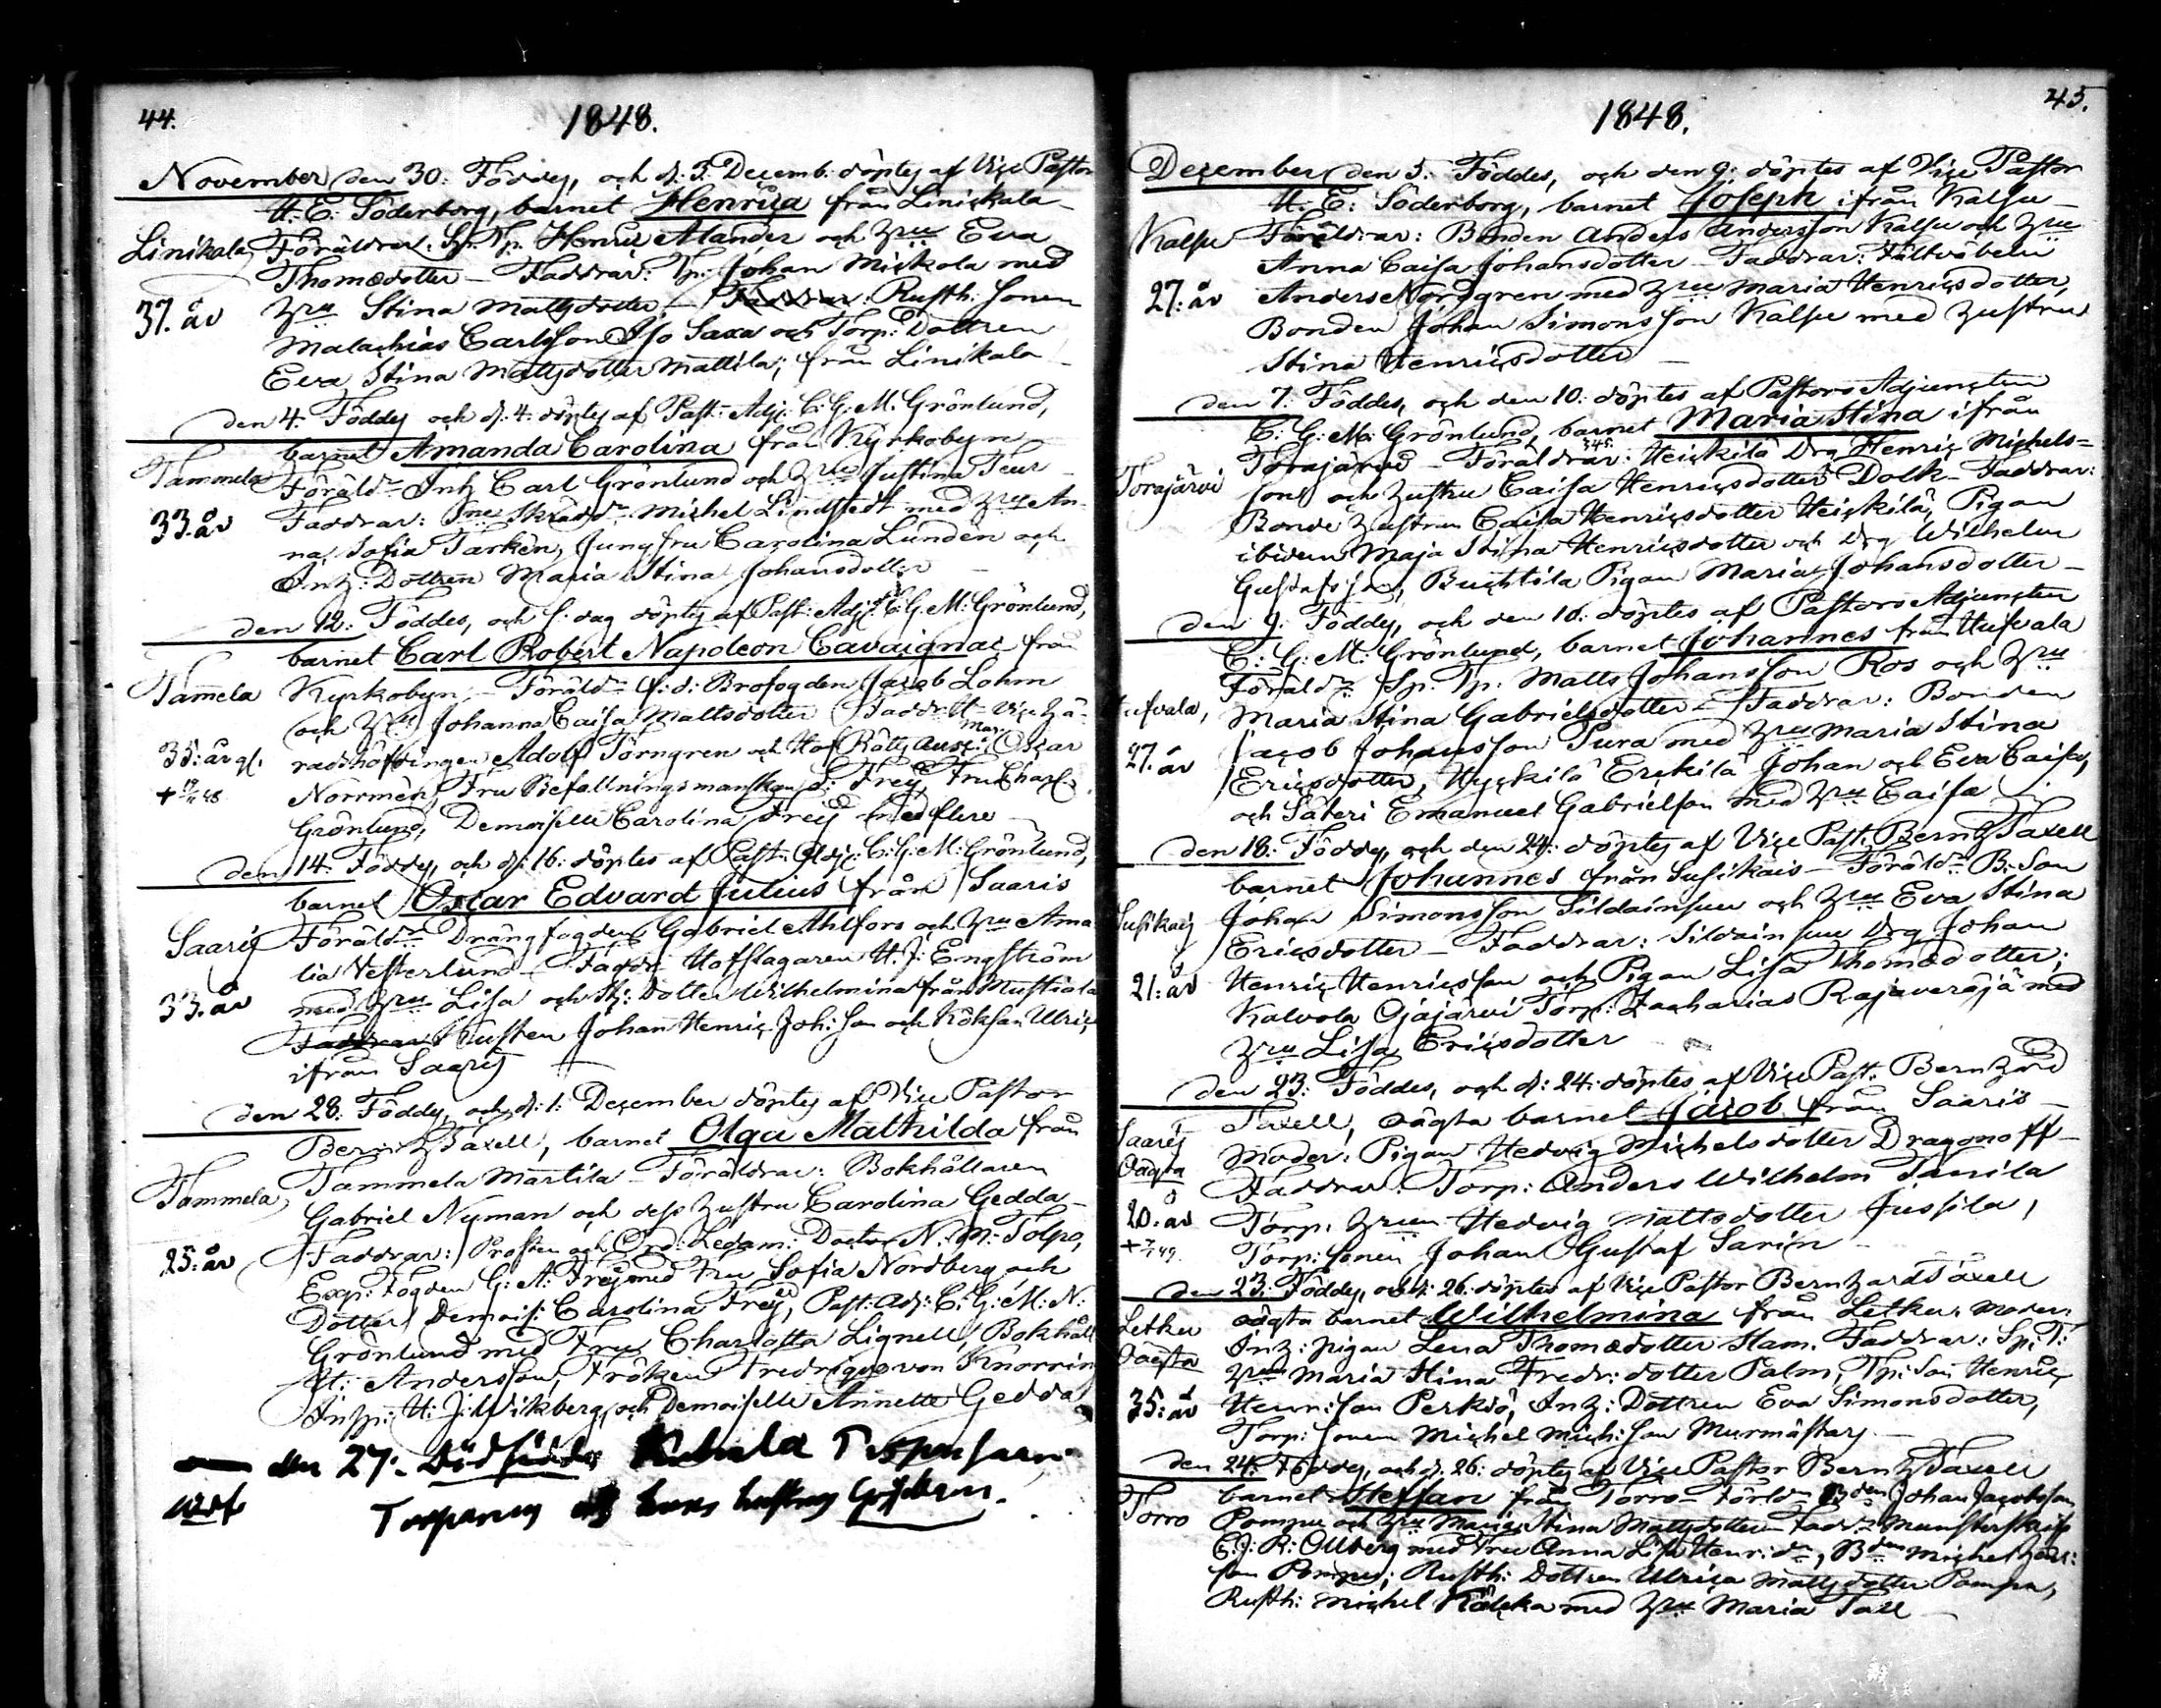 44.
1848.
November den 30. Föddes, och d. 3. Decemb. döptes af Vice Pastor
H. E. Söderborg, barnet Henrica från Linikala
Linikala Föräldrar. Sp. Tp. Henric Alander och Hru Eva
Thomædotter - Faddrar: Tp. Johan Mickola med
37. år Hru Stina Mattsdotter, - Rusth. Sonen
Malachias Carlsson Iso Saxa och Torp. Dottren
Eva Stina Mattsdotter Mattila; från Linikala
den 4. Föddes och d. 4. döptes af Past. Adj. C. G. M. Grönlund,
barnet Amanda Carolina från Kyrkobyn
Tammela Föräldr Inh Carl Grönlund och Hru Justina Teur
33. år Faddrar: Skrädd. Michel Lindstedt med Hru An-
na Sofia Tarkén, Jungfru Carolina Lundén och
Inh: Dottren Maria Stina Johansdotter
den 12: Föddes, och s. dag döptes af Past: Adj: C. G. M: Grönlund,
barnet Carl Robert Napoleon Cavaignac från
Tamela Kyrkobyn, - Föräldr f: d: Brofogden Jacob Lohm
och Hru Johanna Caisa Mattsdotter Faddr: Vice Hä-
35: år gl. radshöfdingen Adolf Törngren och Hof Rätts Ausc: Oscar
+ 48 Norrmén, Fru Befallningsmanskan S: Frey, Fru Charl.
Grönlund, Demoiselle Carolina Frey med flere
den 14. Föddes, och d: 16: döptes af Past: Adj: C: G: M: Grönlund,
barnet Oscar Edvard Julius från Saaris
Saaris Föräldr Drängfogden Gabriel Ahlfors och Hru Ama
lia Vesterlund - Faddr: Hofslagaren H. J: Engström
33. år med Hru Lisa och St: Dotter Wilhelmina från Mustiala
Kusken Johan Henric Joh: Son och Köksan Ulrica
ifrån Saaris
den 28. Föddes, och d: 1: December döptes af Vice Pastor
Bernh Taxell, barnet Olga Mathilda från
Tammela Tammela Martila - Föräldrar: Bokhållaren
Gabriel Nyman och dess hustru Carolina Gedda -
25: år Faddrar: Prosten och Ord: Ledam: Doctor N. M: Tolpo,
Exp: Fogden G: A: Frey med Fru Sofia Nordberg och
Dotter Demois: Carolina Frey, Past: Adj: C: G: M: N:
Grönlund med Fru Charlotta Lignell, Bokhåll
At: Andersson, Fröken Fredrique von Knorring
Insp: H: J: Wikberg, och Demoiselle Annette Gedda
den 27. Dödfödde
Torparens
45.
1848.
December den 5. Föddes, och den 9: döptes af Vice Pastor
H: E: Söderborg, barnet Joseph ifrån Kalsu
Kalsu Föräldrar: Bonden Anders Andersson Kalsu och Hru
Anna Caisa Johansdotter - Faddrar: Fältväbeln
27: år Anders Nordgren med Hru Maria Henricsdotter,
Bonden Johan Simonsson Kalsu med hustru
Stina Henricsdotter
den 7. Föddes, och den 10: döptes af Pastors Adjuncten
C: G: M: Grönlund, barnet Maria Stina ifrån
Torajärvi Torajärvi - Föräldrar: Heickilä Drg Henric Michels-
son och hustru Caisa Henricsdotter Dolk - Faddrar:
Bonde hustrun Caisa Henricsdotter Heickilä, Pigan
ibidem Maja Stina Henricsdotter och Drg Wilhelm
Gustafsson, Buchtila Pigan Maria Johansdotter -
den 9. Föddes, och den 10. döptes af Pastors Adjuncten
C: G: M: Grönlund, barnet Johannes från Hufvala
Hufvala, Föräldr: Sp. Tp. Matts Johansson Ros och Hru
Maria Stina Gabrielsdotter - Faddrar: Bonden
27. år Jacob Johansson Pura med Hru Maria Stina
Ericsdotter, Hyckilä Erckilä Johan och Eva Caisa,
och Säteri Emanuel Gabrielson med Hru Caisa
den 18: Föddes, och den 24: döptes af Vice Past. Bernh Taxell
barnet Johannes från Susikais - Föräldr: B. Son
Susikais Johan Simonsson Sildainsuu och Hru Eva Stina
Ericsdotter - Faddrar: Sildainsuu Drg Johan
21: år Henric Henricsson och Pigan Lisa Thomædotter;
Kalvola Ojajärvi Torp: Zacharias Rajaveräjä med
Hru Lisa Ericsdotter
den 23: Föddes, och d: 24: döptes af Vice Past. Bernhard
Taxell, oägta barnet Jacob från Saaris -
Saaris Moder: Pigan Hedvig Michelsdotter Dragonoff -
Oägta Faddrar: Torp: Anders Wilhelm Tanila
20. år Torp. Hrun Hedvig Mattsdotter Jussila,
+ 49. Torp: Sonen Johan Gustaf Sarin -
den 23: Föddes, och d: 26: döptes af Vice Pastor Bernhard Taxell
Letku oägta barnet Wilhelmina från Letku. Moder:
Oägta Inh: pigan Lena Thomædotter Stam. Faddrar: Sp: T:
Hru Maria Stina Fredr: dotter Palm, Tp: Son Henric
35: år Henr: Son Perkiö, Inh: Dottren Eva Simonsdotter,
Torp: Sonen Michel Mich: Son Murmästars
den 24: Föddes, och d. 26: döptes af Vice Pastor Bernh Taxell
Torro barnet Steffan från Torro - Förldr Bden Johan Jacobsson
Pompu och Hru Maria Stina Mattsdotter - Fadd: Munsterskrif
C. J: R: Ollberg med Fru Anna Lisa Henr: dr, Bden Michel Zach:
son Pompu; Rusth: Dottren Ulrica Mattsdotter Pompu,
Rusth: Michel Kälcka med Hru Maria Tall